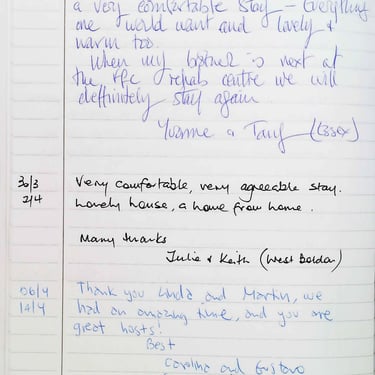 a very comfortable stay - Everything
one would want and lovely &
warm too.
When my brother is next at
the rehab centre we will
deffinitely stay again.
Yvonne & Tany (Essex)
30/3 Very comfortable, very agreeable stay.
2/4 Lovely house, a home from home.
Many thanks
Julie & Keith (West Boldon)
06/4 Thank you Linda and Martin, we
14/4 had an amazing time, and you are
great hosts!
Best
Carolina and Gustavo